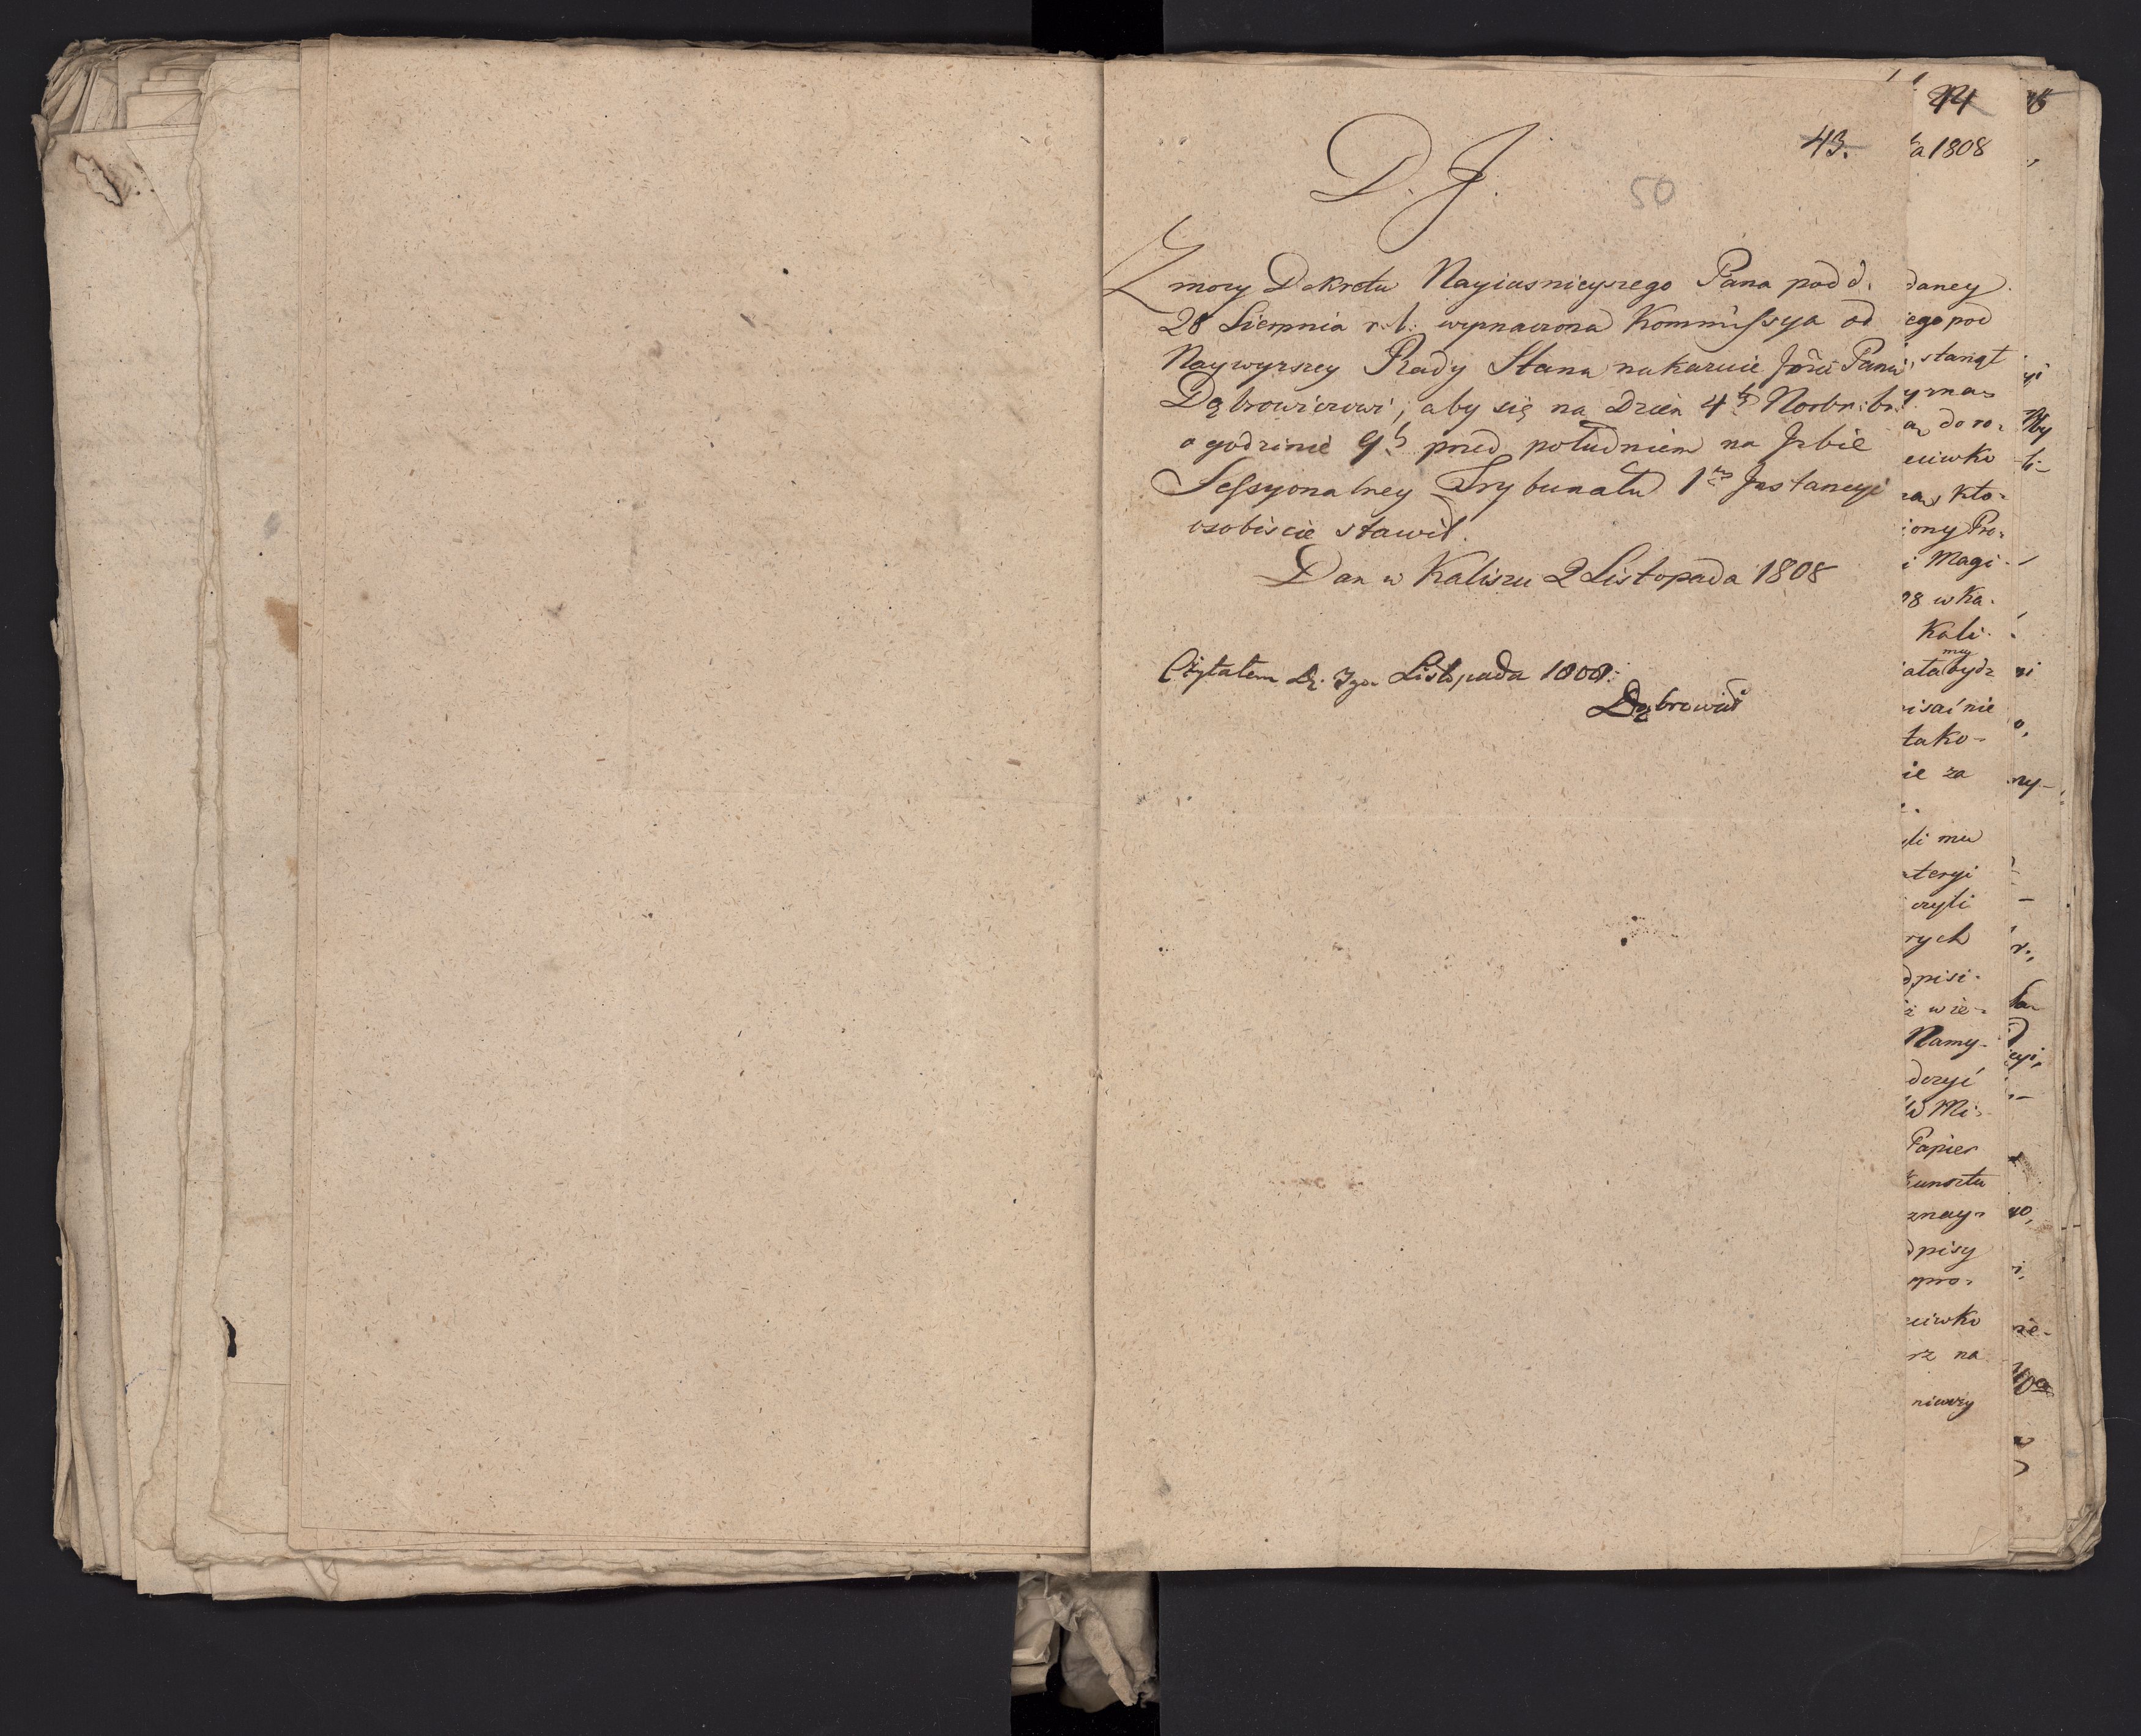 43.
D. J.
50
Z mocy Dekretu Nayiasnieyszego Pana pod d.
28 Sierpnia r. b. wyznaczona Kommissya od
Naywyzszey Rady Stanu nakazuie Panu
Dąbrowiczowi, aby się na Dzien 4ty
o godzinie 9ty przed południem na Jzbie
Sessyonalney Trybunału 1szey Jnstancyi
osobiscie stawił.
Dan w Kaliszu 2 Listopada 1808
Czytałem Dz. 3go Listopada 1808.
Dąbrowicz
44
a 1808
daney
ego pod
stanął
ymas
do ro-
ciwko
kto-
iony Pro-
i Magi-
08 w Ka-
Kali-
may
ała bydz
isaś nie
tako-
ie za
li mu
ateryi
czyli
rych
dpisi-
i wie-
Namy-
deryi
W Mi-
Papier
kunsztu
znay-
dpisy
spro-
ciwko
rz na
niewey